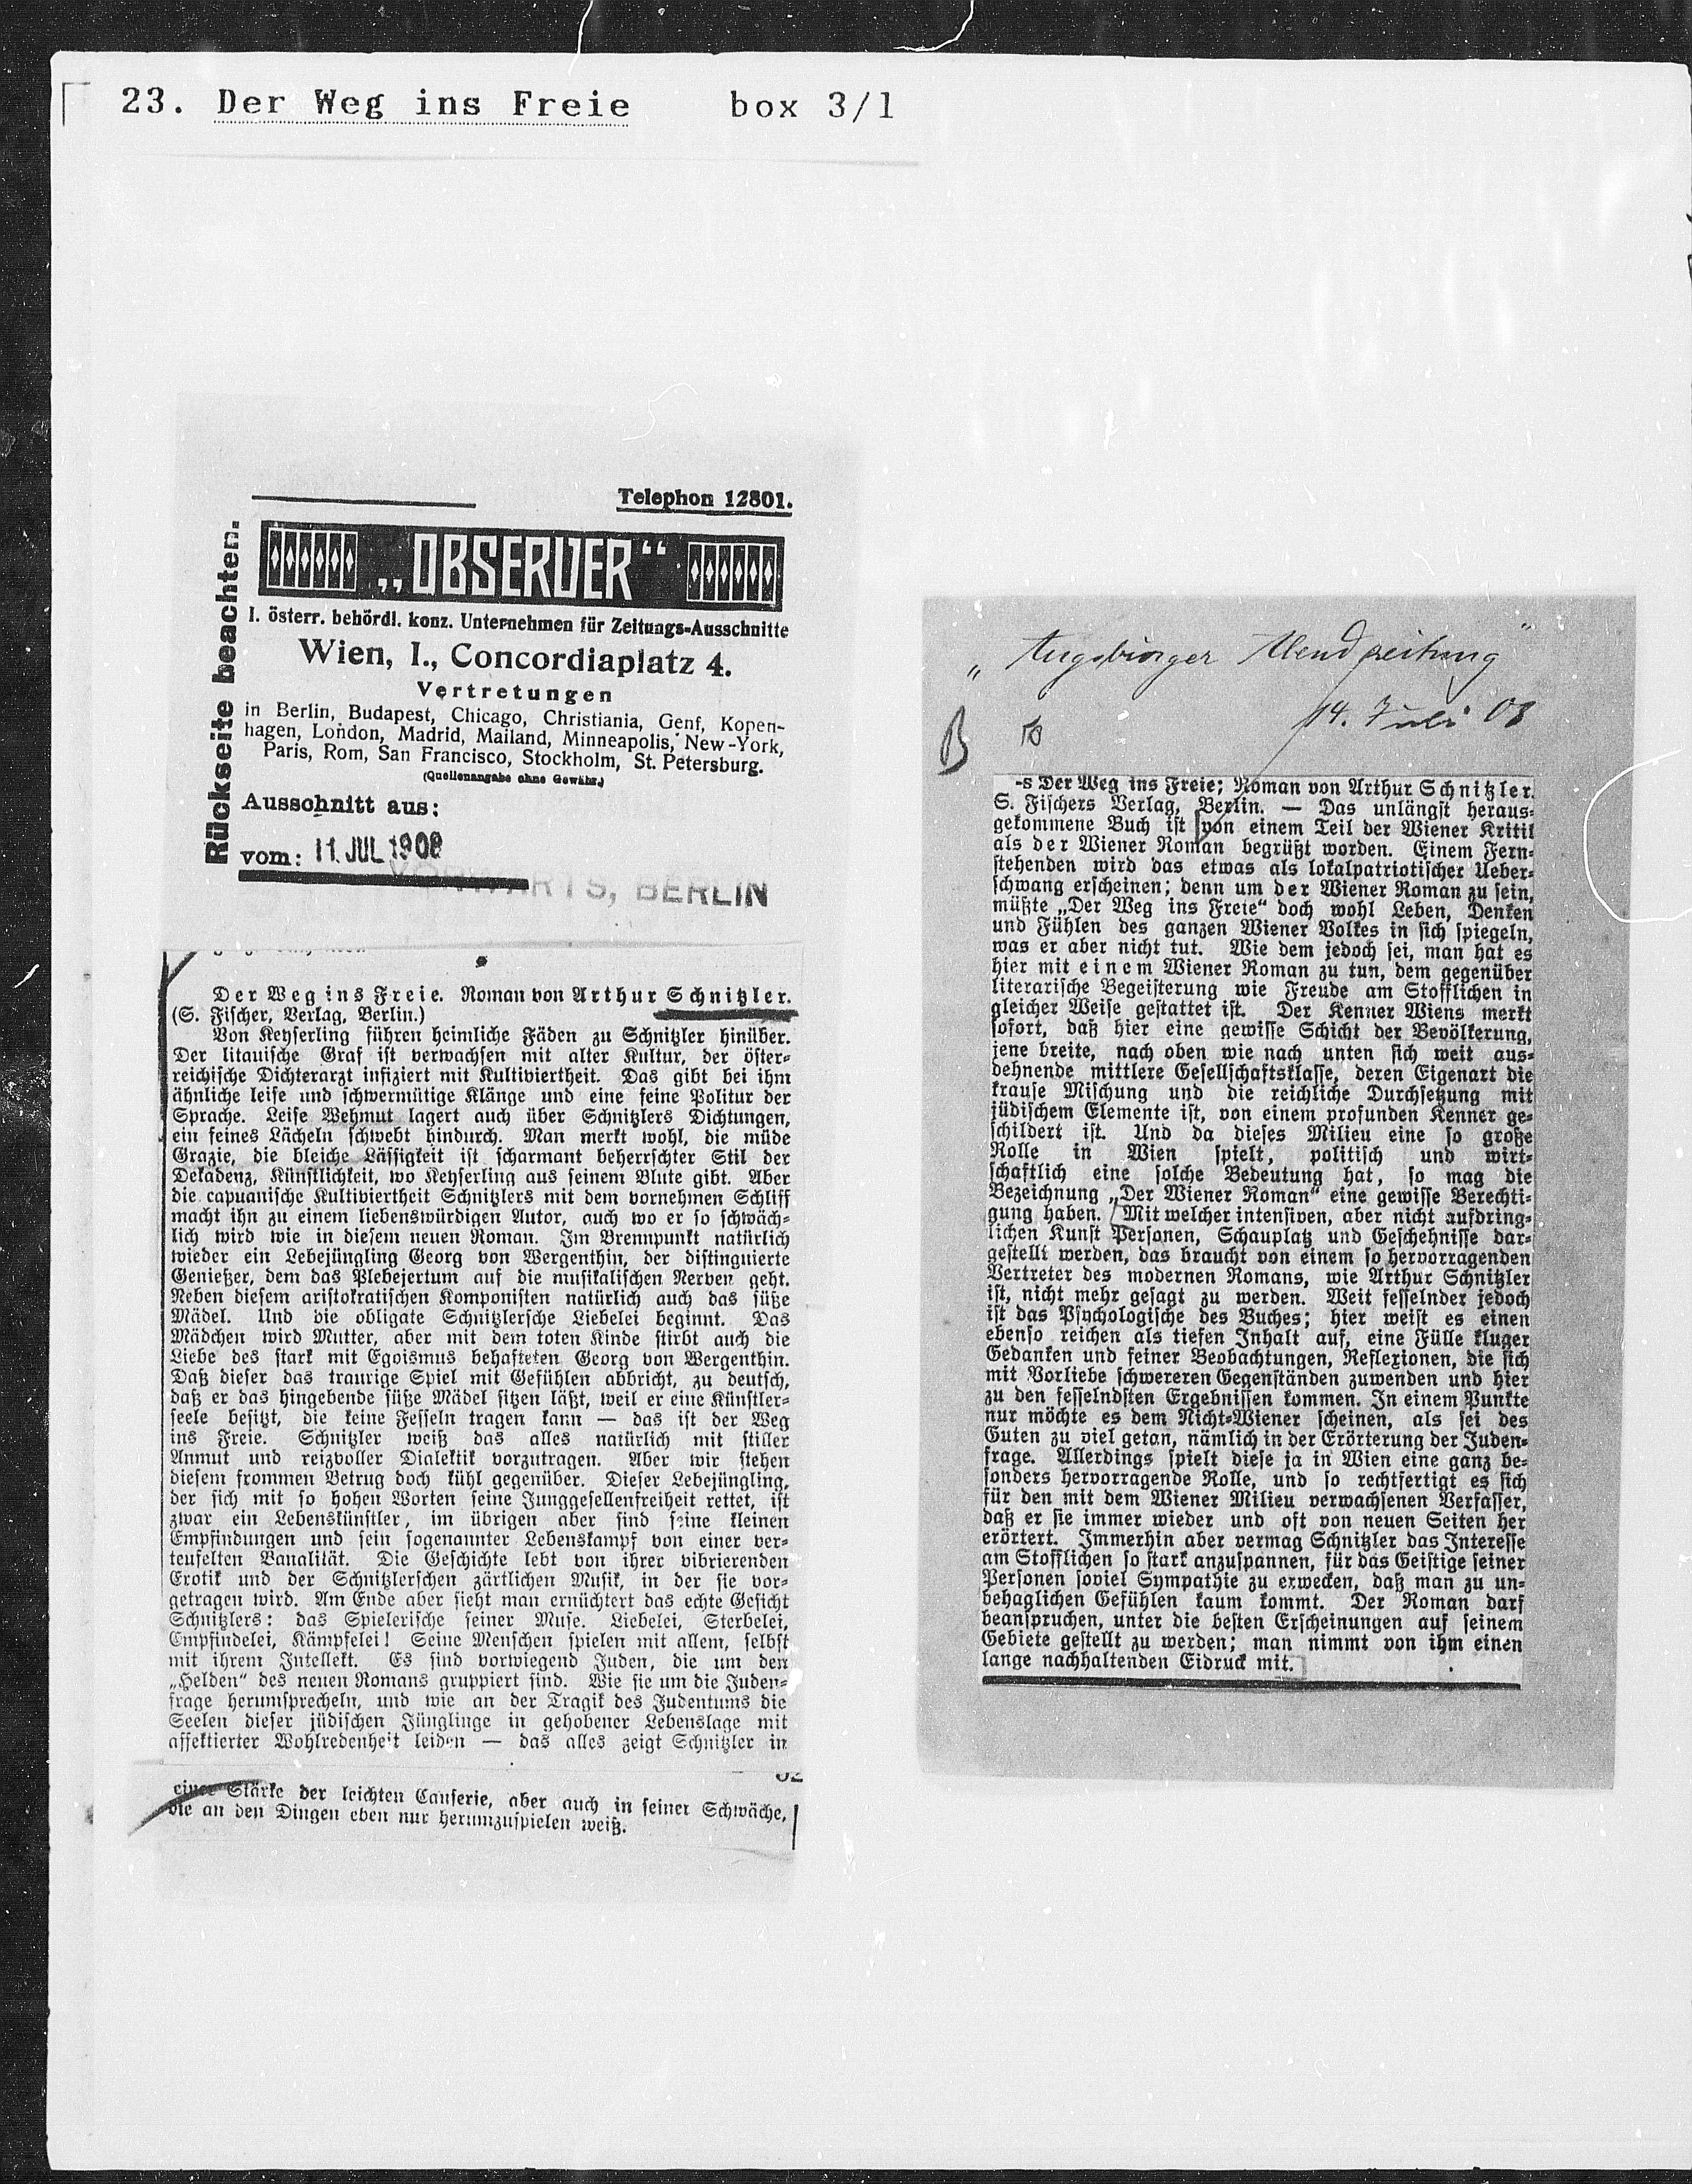 23. Der Weg ins Freie box 3/1
Telephon 12801.
Rückseite beachten.
„OBSERVER“
I. österr. behördl. konz. Unternehmen für Zeitungs-Ausschnitte
Wien, I., Concordiaplatz 4.
Vertretungen
in Berlin, Budapest, Chicago, Christiania, Genf, Kopen-
hagen, London, Madrid, Mailand, Minneapolis, New-York,
Paris, Rom, San Francisco, Stockholm, St. Petersburg.
(Quellenangabe ohne Gewähr.)
Ausschnitt aus:
vom: 11. JUL 1908
VORWARTS, BERLIN
Der Weg ins Freie. Roman von Arthur Schnitzler.
(S. Fischer, Verlag, Berlin.)
Von Keyserling führen heimliche Fäden zu Schnitzler hinüber.
Der litauische Graf ist verwachsen mit alter Kultur, der öster-
reichische Dichterarzt infiziert mit Kultiviertheit. Das gibt bei ihm
ähnliche leise und schwermütige Klänge und eine feine Politur der
Sprache. Leise Wehmut lagert auch über Schnitzlers Dichtungen,
ein feines Lächeln schwebt hindurch. Man merkt wohl, die müde
Grazie, die bleiche Lässigkeit ist scharmant beherrschter Stil der
Dekadenz, Künstlichkeit, wo Keyserling aus seinem Blute gibt. Aber
die capuanische Kultiviertheit Schnitzlers mit dem vornehmen Schliff
macht ihn zu einem liebenswürdigen Autor, auch wo er so schwäch-
lich wird wie in diesem neuen Roman. Im Brennpunkt natürlich
wieder ein Lebejüngling Georg von Wergenthin, der distinguierte
Genießer, dem das Plebejertum auf die musikalischen Nerven geht.
Neben diesem aristokratischen Komponisten natürlich auch das süße
Mädel. Und die obligate Schnitzlersche Liebelei beginnt. Das
Mädchen wird Mutter, aber mit dem toten Kinde stirbt auch die
Liebe des stark mit Egoismus behafteten Georg von Wergenthin.
Daß dieser das traurige Spiel mit Gefühlen abbricht, zu deutsch,
daß er das hingebende süße Mädel sitzen läßt, weil er eine Künstler-
seele besitzt, die keine Fesseln tragen kann — das ist der Weg
ins Freie. Schnitzler weiß das alles natürlich mit stiller
Anmut und reizvoller Dialektik vorzutragen. Aber wir stehen
diesem frommen Betrug doch kühl gegenüber. Dieser Lebejüngling,
der sich mit so hohen Worten seine Junggesellenfreiheit rettet, ist
zwar ein Lebenskünstler, im übrigen aber sind seine kleinen
Empfindungen und sein sogenannter Lebenskampf von einer ver-
teufelten Banalität. Die Geschichte lebt von ihrer vibrierenden
Erotik und der Schnitzlerschen zärtlichen Musik, in der sie vor-
getragen wird. Am Ende aber sieht man ernüchtert das echte Gesicht
Schnitzlers: das Spielerische seiner Muse. Liebelei, Sterbelei,
Empfindelei, Kämpfelei! Seine Menschen spielen mit allem, selbst
mit ihrem Intellekt. Es sind vorwiegend Juden, die um den
„Helden“ des neuen Romans gruppiert sind. Wie sie um die Juden-
frage herumsprecheln, und wie an der Tragik des Judentums die
Seelen dieser jüdischen Jünglinge in gehobener Lebenslage mit
affektierter Wohlredenheit leiden — das alles zeigt Schnitzler in
einer Stärke der leichten Causerie, aber auch in seiner Schwäche,
die an den Dingen eben nur herumzuspielen weiß.
„Augsburger Abendzeitung“
14. Juli 08
B
-s Der Weg ins Freie; Roman von Arthur Schnitzler.
S. Fischers Verlag, Berlin. — Das unlängst heraus-
gekommene Buch ist von einem Teil der Wiener Kritik
als der Wiener Roman begrüßt worden. Einem Fern-
stehenden wird das etwas als lokalpatriotischer Ueber-
schwang erscheinen; denn um der Wiener Roman zu sein,
müßte „Der Weg ins Freie“ doch wohl Leben, Denken
und Fühlen des ganzen Wiener Volkes in sich spiegeln,
was er aber nicht tut. Wie dem jedoch sei, man hat es
hier mit einem Wiener Roman zu tun, dem gegenüber
literarische Begeisterung wie Freude am Stofflichen in
gleicher Weise gestattet ist. Der Kenner Wiens merkt
sofort, daß hier eine gewisse Schicht der Bevölkerung,
jene breite, nach oben wie nach unten sich weit aus-
dehnende mittlere Gesellschaftsklasse, deren Eigenart die
krause Mischung und die reichliche Durchsetzung mit
jüdischem Elemente ist, von einem profunden Kenner ge-
schildert ist. Und da dieses Milieu eine so große
Rolle in Wien spielt, politisch und wirt-
schaftlich eine solche Bedeutung hat, so mag die
Bezeichnung „Der Wiener Roman“ eine gewisse Berechti-
gung haben. Mit welcher intensiven, aber nicht aufdring-
lichen Kunst Personen, Schauplatz und Geschehnisse dar-
gestellt werden, das braucht von einem so hervorragenden
Vertreter des modernen Romans, wie Arthur Schnitzler
ist, nicht mehr gesagt zu werden. Weit fesselnder jedoch
ist das Psychologische des Buches; hier weist es einen
ebenso reichen als tiefen Inhalt auf, eine Fülle kluger
Gedanken und feiner Beobachtungen, Reflexionen, die sich
mit Vorliebe schwereren Gegenständen zuwenden und hier
zu den fesselndsten Ergebnissen kommen. In einem Punkte
nur möchte es dem Nicht-Wiener scheinen, als sei des
Guten zu viel getan, nämlich in der Erörterung der Juden-
frage. Allerdings spielt diese ja in Wien eine ganz be-
sonders hervorragende Rolle, und so rechtfertigt es sich
für den mit dem Wiener Milieu verwachsenen Verfasser,
daß er sie immer wieder und oft von neuen Seiten her
erörtert. Immerhin aber vermag Schnitzler das Interesse
am Stofflichen so stark anzuspannen, für das Geistige seiner
Personen soviel Sympathie zu erwecken, daß man zu un-
behaglichen Gefühlen kaum kommt. Der Roman darf
beanspruchen, unter die besten Erscheinungen auf seinem
Gebiete gestellt zu werden; man nimmt von ihm einen
lange nachhaltenden Eidruck mit.